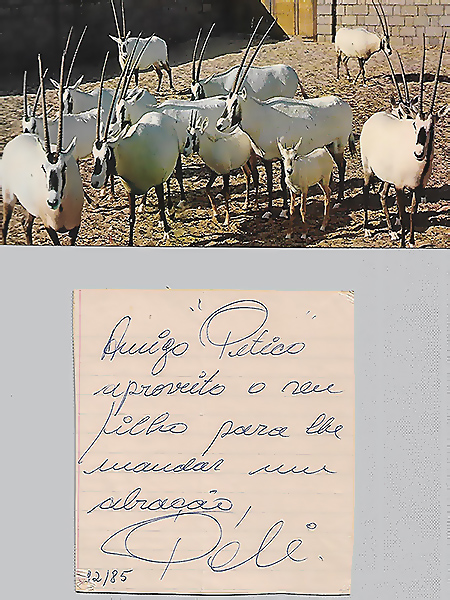 Amigo "Petico"
aproveito o seu
filho para lhe
mandar um
abração,
Pelé.
12/85